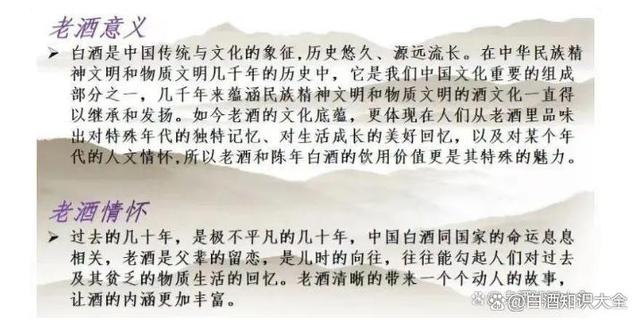 老酒意义
➢ 白酒是中国传统与文化的象征,历史悠久、源远流长。在中华民族精
神文明和物质文明几千年的历史中，它是我们中国文化重要的组成
部分之一，几千年来蕴涵民族精神文明和物质文明的酒文化一直得
以继承和发扬。如今老酒的文化底蕴，更体现在人们从老酒里品味
出对特殊年代的独特记忆、对生活成长的美好回忆，以及对某个年
代的人文情怀,所以老酒和陈年白酒的饮用价值更是其特殊的魅力。
老酒情怀
➢ 过去的几十年，是极不平凡的几十年，中国白酒同国家的命运息息
相关，老酒是父辈的留恋，是儿时的向往，往往能勾起人们对过去
及其贫乏的物质生活的回忆。老酒清晰的带来一个个动人的故事，
让酒的内涵更加丰富。
@白酒知识大全